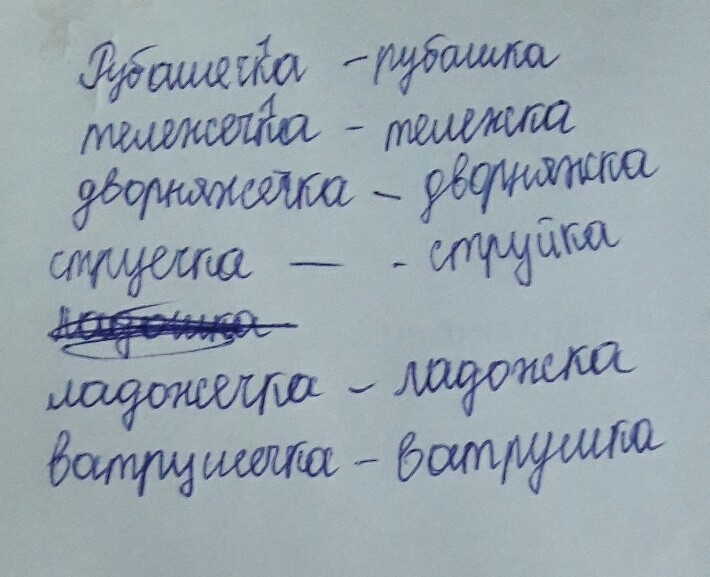 Рубашечка - рубашка
тележечка - тележка
дворняжечка - дворняжка
струечка - - струйка
ладошка
ладожечка - ладожка
ватрушечка - ватрушка